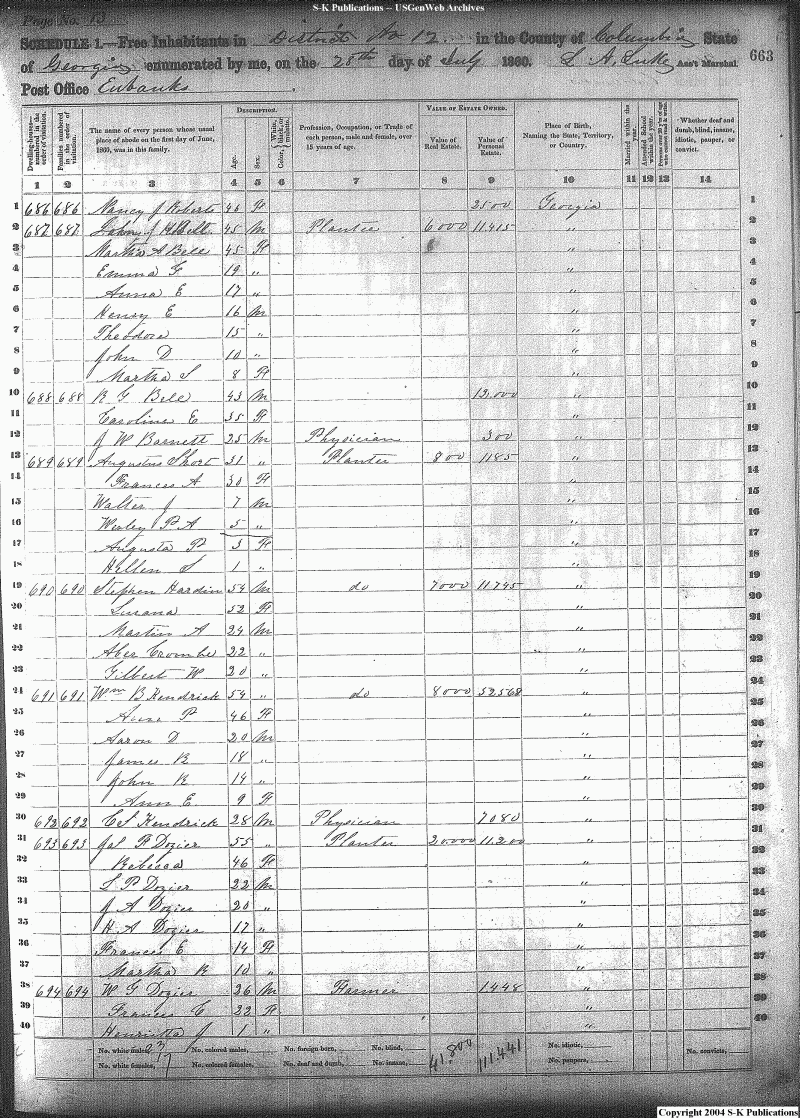 S-K Publications -- USGenWeb Archives
Page No. 13
SCHEDULE 1.—Free Inhabitants in District No 12 in the County of Columbia State
of Georgia enumerated by me, on the 28th day of July 1860. L A Luke Ass't Marshal
663
Post Office Eubanks
Dwelling-houses— numbered in the order of visitation.
Families numbered in the order of visitation.
The name of every person whose usual place of abode on the first day of June, 1860, was in this family.
DESCRIPTION.
Age.
Sex.
Color, White, black, or mulatto.
Profession, Occupation, or Trade of each person, male and female, over 15 years of age.
VALUE OF ESTATE OWNED.
Value of Real Estate.
Value of Personal Estate.
Place of Birth, Naming the State, Territory, or Country.
Married within the year.
Attended School within the year.
Whether deaf and dumb, blind, insane, idiotic, pauper, or convict.
1 2 3 4 5 6 7 8 9 10 11 12 13 14
1 686 686 Nancy J Roberts 46 F 2500 Georgia 1
2 687 687 45 M Planter 6000 11415 " 2
3 Martha A Bell 45 F " 3
4 Emma F 19 " " 4
5 Anna E 17 " " 5
6 Henry E 16 M " 6
7 Theodore 15 " " 7
8 John D 10 " " 8
9 Martha S 8 F " 9
10 688 688 R G Bell 43 M 12.000 " 10
11 Caroline E 35 F " 11
12 J W Barnett 25 M Physician 300 " 12
13 689 689 Augustus Short 31 " Planter 800 1185 " 13
14 Frances A 30 F " 14
15 Walter J 7 M " 15
16 Wesley P A 5 " " 16
17 Augusta P 3 F " 17
18 Hellen S 1 " " 18
19 690 690 Stephen Hardin 54 M do 7000 11745 " 19
20 Lurana 52 F " 20
21 Martin A 24 M " 21
22 Aber Crombe 22 " " 22
23 Gilbert W 20 " " 23
24 691 691 Wm B Kendrick 54 " do 8000 52568 " 24
25 Anne P 46 F " 25
26 Aaron D 20 M " 26
27 James R 18 " " 27
28 John R 14 " " 28
29 Ann E 9 F " 29
30 692 692 C S Kendrick 28 M Physician 7080 " 30
31 693 693 Jas F Dozier 55 " Planter 20000 11.200 " 31
32 Rebecca 46 F " 32
33 L P Dozier 22 M " 33
34 J A Dozier 20 " " 34
35 H A Dozier 17 " " 35
36 Frances E 14 F " 36
37 Martha R 10 " " 37
38 694 694 W G Dozier 26 M Farmer 1448 " 38
39 Frances C 22 F " 39
40 Henrietta J 1 " " 40
No. white males, 23 No. colored males, No. foreign born, No. blind, 41.800 111.441 No. idiotic, No. convicts,
No. white females, 17 No. colored females, No. deaf and dumb, No. insane, No. paupers,
Copyright 2004 S-K Publications